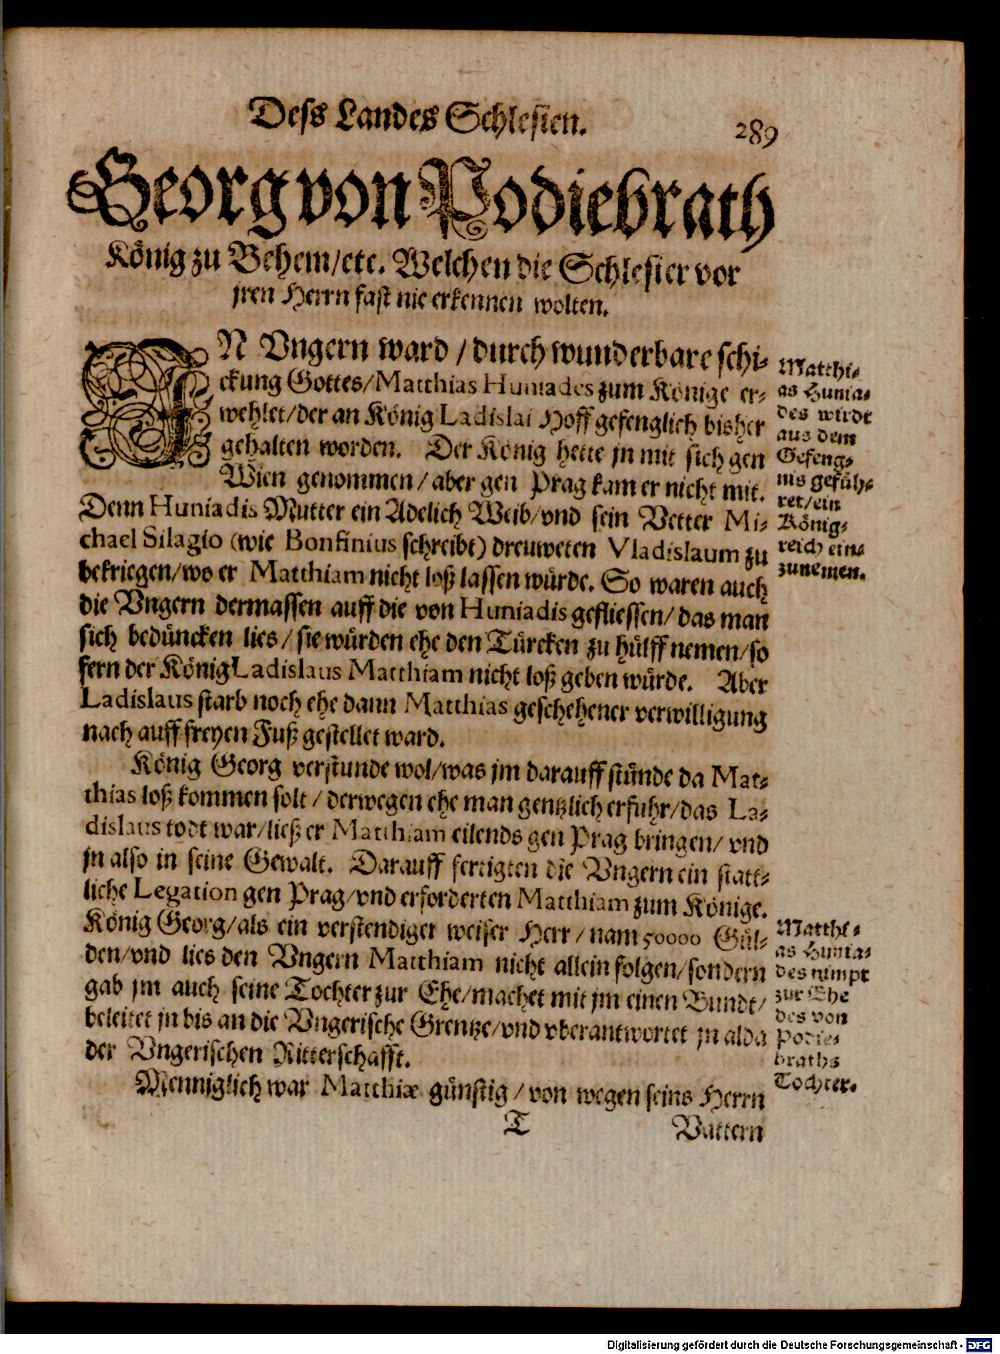 Dess Landes Schlesien.
289
Georg von Podiebrath
König zu Behem/etc. Welchen die Schlesier vor
jren Herrn fast nie erkennen wolten.
IN Vngern ward / durch wunderbare schi-
ckung Gottes/Matthias Huniades zum Könige er-
wehlet/der an König Ladislai Hoff gefenglich bisher
gehalten worden. Der König hette jn mit sich gen
Wien genommen/ aber gen Prag kam er nicht mit.
Denn Huniadis Mutter ein Adelich Weib/vnd sein Vetter Mi-
chael Silagio (wie Bonfinius schreibt) dreuweten Vladislaum zu
bekriegen/wo er Matthiam nicht loß lassen würde. So waren auch
die Vngern dermassen auff die von Huniadis gefliessen/ das man
sich bedüncken lies/ sie würden ehe den Türcken zu hülff nemen/so
fern der König Ladislaus Matthiam nicht loß geben würde. Aber
Ladislaus starb noch ehe dann Matthias geschehener verwilligung
nach auff freyen Fuß gestellet ward.
König Georg verstunde wol/was jm darauff stünde da Mat-
thias loß kommen solt / derwegen ehe man gentzlich erfuhr/das La-
dislaus todt war/ließ er Matthiam eilends gen Prag bringen/ vnd
jn also in seine Gewalt. Darauff fertigten die Vngern ein statt-
liche Legation gen Prag/vnd erforderten Matthiam zum Könige.
König Georg/als ein verstendiger weiser Herr / nam 50000 Gül-
den/vnd lies den Vngern Matthiam nicht allein folgen/sondern
gab jm auch seine Tochter zur Ehe/machet mit jm einen Bundt/
beleitet jn bis an die Vngerische Grentze/vnd vberantwortet jn alda
der Vngerischen Ritterschafft.
Menniglich war Matthiæ günstig / von wegen seins Herrn
T
Vattern
Matthi-
as Hunia-
des wirdt
aus dem
Gefeng-
nis gefüh-
ret/ein
König-
reich ein-
zunemen.
Matthi-
as Hunia-
des nimpt
zur Ehe
des von
Podie-
braths
Tochter.
Digitalisierung gefördert durch die Deutsche Forschungsgemeinschaft - DFG